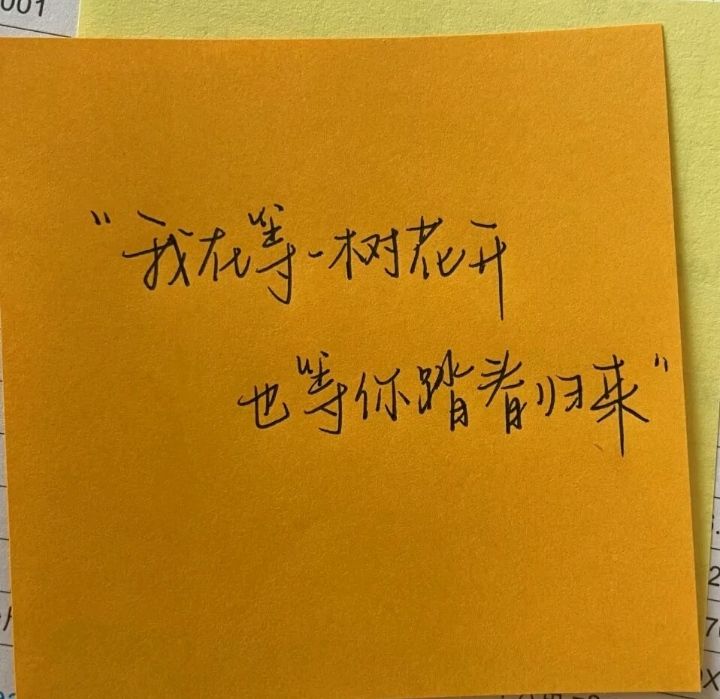 001
"我在等一树花开
也等你踏春归来"